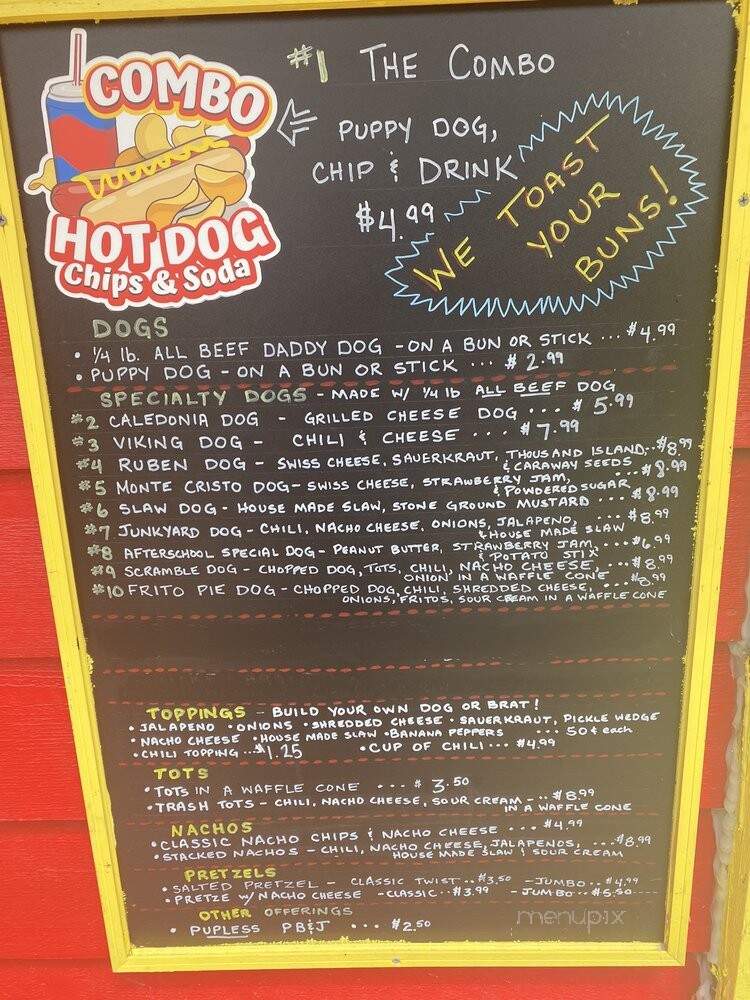 COMBO
HOT DOG
Chips & Soda
#1 THE COMBO
PUPPY DOG,
CHIP & DRINK
$4.99
WE TOAST
YOUR
BUNS!
DOGS
• 1/4 lb. ALL BEEF DADDY DOG - ON A BUN OR STICK ... $4.99
• PUPPY DOG - ON A BUN OR STICK ... $2.99
SPECIALTY DOGS - MADE W/ 1/4 lb ALL BEEF DOG
#2 CALEDONIA DOG - GRILLED CHEESE DOG ... $5.99
#3 VIKING DOG - CHILI & CHEESE ... $7.99
#4 RUBEN DOG - SWISS CHEESE, SAUERKRAUT, THOUSAND ISLAND, .. $8.99
& CARAWAY SEEDS
#5 MONTE CRISTO DOG - SWISS CHEESE, STRAWBERRY JAM, ... $8.99
& POWDERED SUGAR
#6 SLAW DOG - HOUSE MADE SLAW, STONE GROUND MUSTARD ... $8.99
#7 JUNKYARD DOG - CHILI, NACHO CHEESE, ONIONS, JALAPENO, ... $8.99
& HOUSE MADE SLAW
#8 AFTERSCHOOL SPECIAL DOG - PEANUT BUTTER, STRAWBERRY JAM .... $6.99
& POTATO STIX
#9 SCRAMBLE DOG - CHOPPED DOG, TOTS, CHILI, NACHO CHEESE, ... $8.99
ONION IN A WAFFLE CONE
#10 FRITO PIE DOG - CHOPPED DOG, CHILI, SHREDDED CHEESE, ... $8.99
ONIONS, FRITOS, SOUR CREAM IN A WAFFLE CONE
TOPPINGS - BUILD YOUR OWN DOG OR BRAT!
• JALAPENO • ONIONS • SHREDDED CHEESE • SAUERKRAUT, PICKLE WEDGE
• NACHO CHEESE • HOUSE MADE SLAW • BANANA PEPPERS ... 50¢ each
• CHILI TOPPING ... $1.25 • CUP OF CHILI ... $4.99
TOTS
• TOTS IN A WAFFLE CONE ... $3.50
• TRASH TOTS - CHILI, NACHO CHEESE, SOUR CREAM - ... $8.99
IN A WAFFLE CONE
NACHOS
• CLASSIC NACHO CHIPS & NACHO CHEESE ... $4.99
• STACKED NACHOS - CHILI, NACHO CHEESE, JALAPENOS, ... $8.99
HOUSE MADE SLAW & SOUR CREAM
PRETZELS
• SALTED PRETZEL - CLASSIC TWIST .. $3.50 - JUMBO .. $4.99
• PRETZE W/ NACHO CHEESE - CLASSIC .. $3.99 - JUMBO .. $5.50
OTHER OFFERINGS
• PUPLESS PB&J ... $2.50
menupix